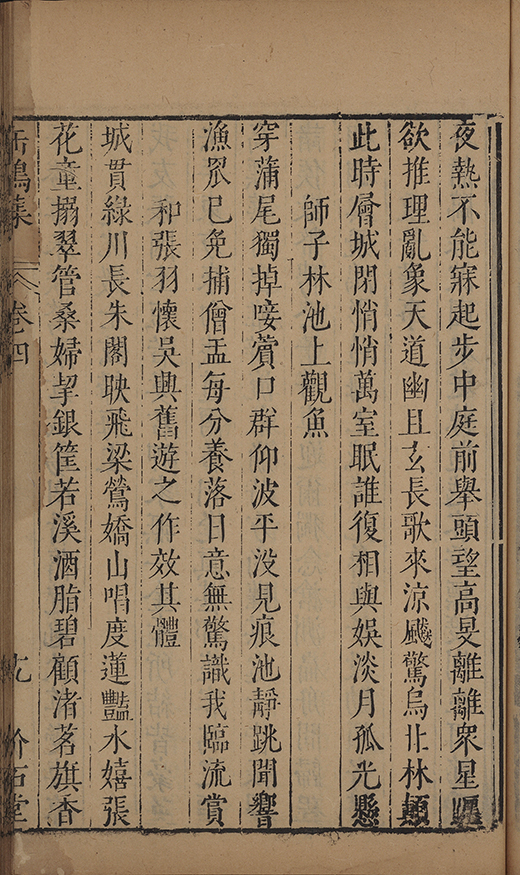 夜熱不能寐起步中庭前舉頭望高旻離離衆星躔
欲推理亂象天道幽且玄長歌來涼飈驚烏北林顛
此時層城閉悄悄萬室眠誰復相與娛淡月孤光懸
師子林池上觀魚
穿蒲尾獨掉唼薲口群仰波平没見痕池靜跳聞響
漁罛已免捕僧盂每分養落日意無驚識我臨流賞
和張羽懷吳興舊遊之作效其體
城貫綠川長朱閣映飛梁鶯嬌山唱度蓮豔水嬉張
花童搦翠管桑婦挈銀筐若溪酒脂碧顧渚茗旗香
缶鳴集
卷四
九
竹石堂